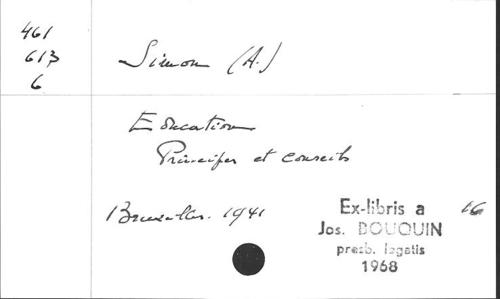 461
613
6
Simon (A.)
Education
Principes et conseils
Bruxelles. 1941
16
Ex-libris a
Jos. DOUQUIN
presb. legatis
1968